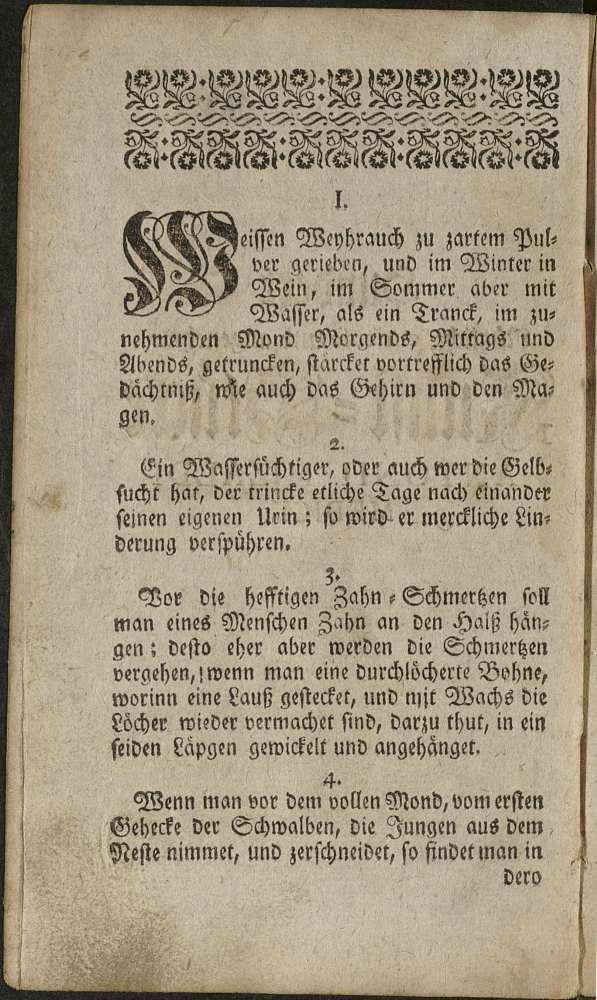 I.
Weissen Weyhrauch zu zartem Pul-
ver gerieben, und im Winter in
Wein, im Sommer aber mit
Wasser, als ein Tranck, im zu-
nehmenden Mond Morgends, Mittags und
Abends, getruncken, stärcket vortrefflich das Ge-
dächtniß, wie auch das Gehirn und den Ma-
gen.
2.
Ein Wassersüchtiger, oder auch wer die Gelb-
sucht hat, der trincke etliche Tage nach einander
seinen eigenen Urin; so wird er merckliche Lin-
derung verspühren.
3.
Vor die hefftigen Zahn-Schmertzen soll
man eines Menschen Zahn an den Halß hän-
gen; desto eher aber werden die Schmertzen
vergehen, wenn man eine durchlöcherte Bohne,
worinn eine Lauß gestecket, und mit Wachs die
Löcher wieder vermachet sind, darzu thut, in ein
seiden Läpgen gewickelt und angehänget.
4.
Wenn man vor dem vollen Mond, vom ersten
Gehecke der Schwalben, die Jungen aus dem
Neste nimmet, und zerschneidet, so findet man in
dero